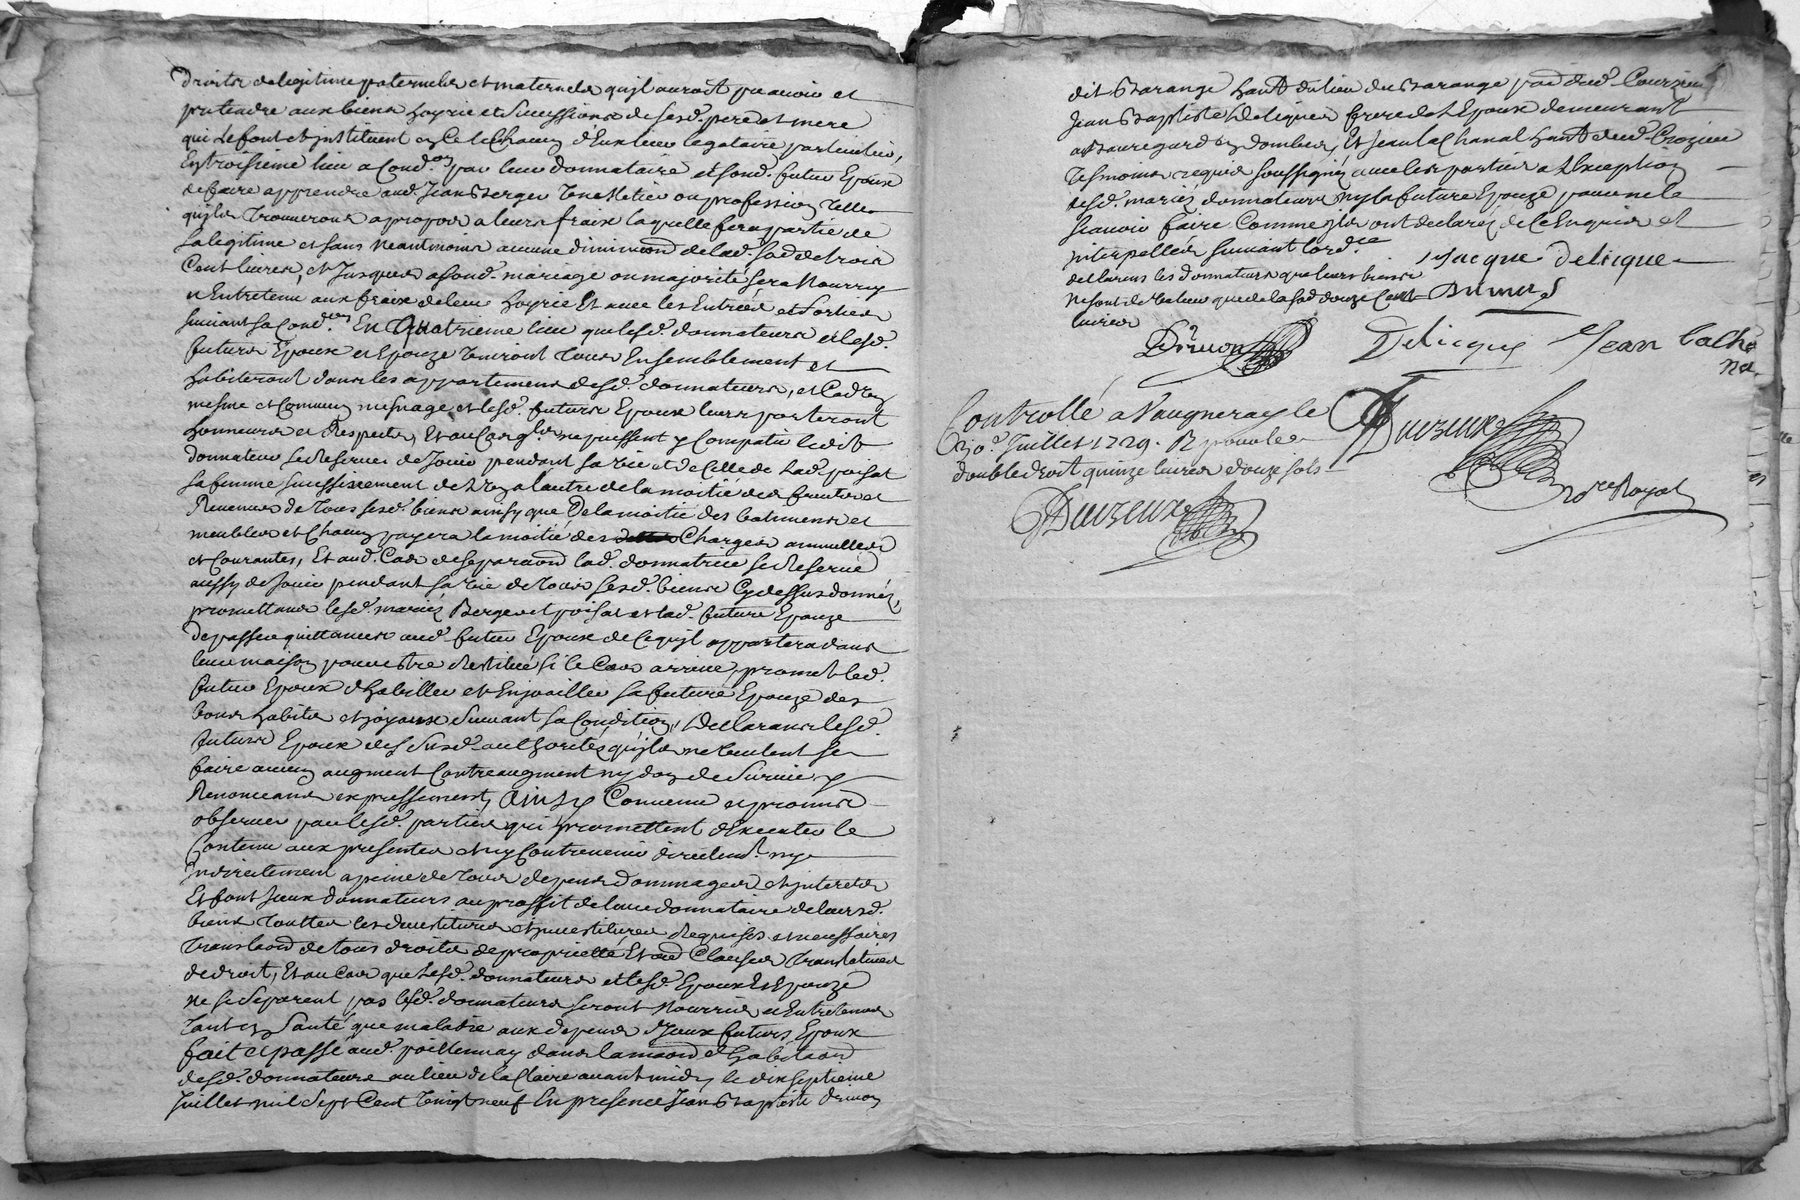 droits de legitime paternels et maternels qu'jl auroit pu avoir et
pretendre aux biens hoyrie et successions de sesd. pere et mere
qui le font et jnstituent en ce le chacun d'eux leur legataire particulier,
En troisieme lieu a Cond.on que leur donnataire et sond. futur Epoux
de faire apprendre aud. Jean Berger Un Metier ou profession telle
qu'jls trouverons a propos a leurs fraix laquelle fera partie de
sa legitime et sans neantmoins aucune diminuon de lad. so.e de trois
Cent livres, et Jusques a sond. mariage ou majorité sera Nourry
et Entretenu aux fraix de leur hoyrie Et avec les Entrées et sorties
suivant sa Cond.on En Quatrieme lieu que lesd. donnateurs et lesd.
futurs Epoux et Epouze Vivront tous Ensemblement et
habiteront dans les appartements desd. donnateurs, et Cadrez
mesme et Commun mesnage et lesd. futurs Epoux leurs porteront
honneurs et Respects, Et au Cas qu'ils ne puissent y Compatir ledit
donnateur se Reserve de Jouir pendant sa vie et de Celle de lad. poisat
sa femme successivement de l'Un a l'autre de la moitié des fruits et
Revenus de tous sesd. biens ainsy que De la moitié des batiments et
meubles et Chacun payera la moitié des Charges annuelles
et Courantes, Et aud. Cas de separaon lad. donnatrice se Reserve
aussy de Jouir pendant sa vie de tous sesd. biens Cy dessus donnéz,
promettans lesd. mariez Berger et poisat et lad. future Epouze
de passer quittances aud. futur Epoux de Ce qu'jl apportera dans
leur maison pour estre Restitué si le Cas arrive, promet led.
futur Epoux d'habiller et Enjoailler sa future Epouze des
bons habits et joyaux suivant sa Condition, Declarans lesd.
futurs Epoux de susd. authorités qu'jls ne Veulent se
faire aucun augment Contreaugment ny don de survie y
Renonceans expressement, Ainsy Convenu et promis
observer par lesd. parties qui promettent d'executer le
Contenu aux presentes et n'y Contrevenir directem.t ny
Indirectement a peine de tous depens Dommages et jnterets
Et font jceux donnateurs au proffit de leur donnataire de leursd.
biens touttes les devestitures et jnvestitures Requises et necessaires
translaon de tous droits de proprietté Et aud. Clauses translatives
de droit, Et au Cas que lesd. donnateurs et lesd. Epoux Et Epouze
ne se separent pas lesd. donnateurs seront Nourris et Entretenus
tant en santé que maladie aux depens d'jceux futurs Epoux
fait et passé aud. pollionnay dans la maison d'habitaon
desd. donnateurs au lieu de la Claire avant midy le dix septieme
Juillet mil sept Cent Vingt neuf En presence Jean Baptiste
dit Barange hab.t du lieu du Barange par.d Courzieu
Jean Baptiste Delique frere de l'Epoux demeurant
a Beauregard en dombes, Et Jean la Chanal hab.t dud. Crozieu
tesmoins requis soussignéz avec les parties a l'Exception
desd. mariez donnateurs ny la future Epouze pour ne le
sçavoir faire Comme jls ont declaréz de Ce Enquis et
jnterpellés suivant l'ord.ce
declarans les donnateurs que leurs biens
ne sont de Valeur que de la so.e douze Cent
livres
Jacque Delicque
Delicque
Jean Lacha
nal
Controllé a Vaugneray le
30.e Juillet 1729. R pour le
double droit quinze livres douze sols
Duvzeux
Duvzeux
No.re Royal